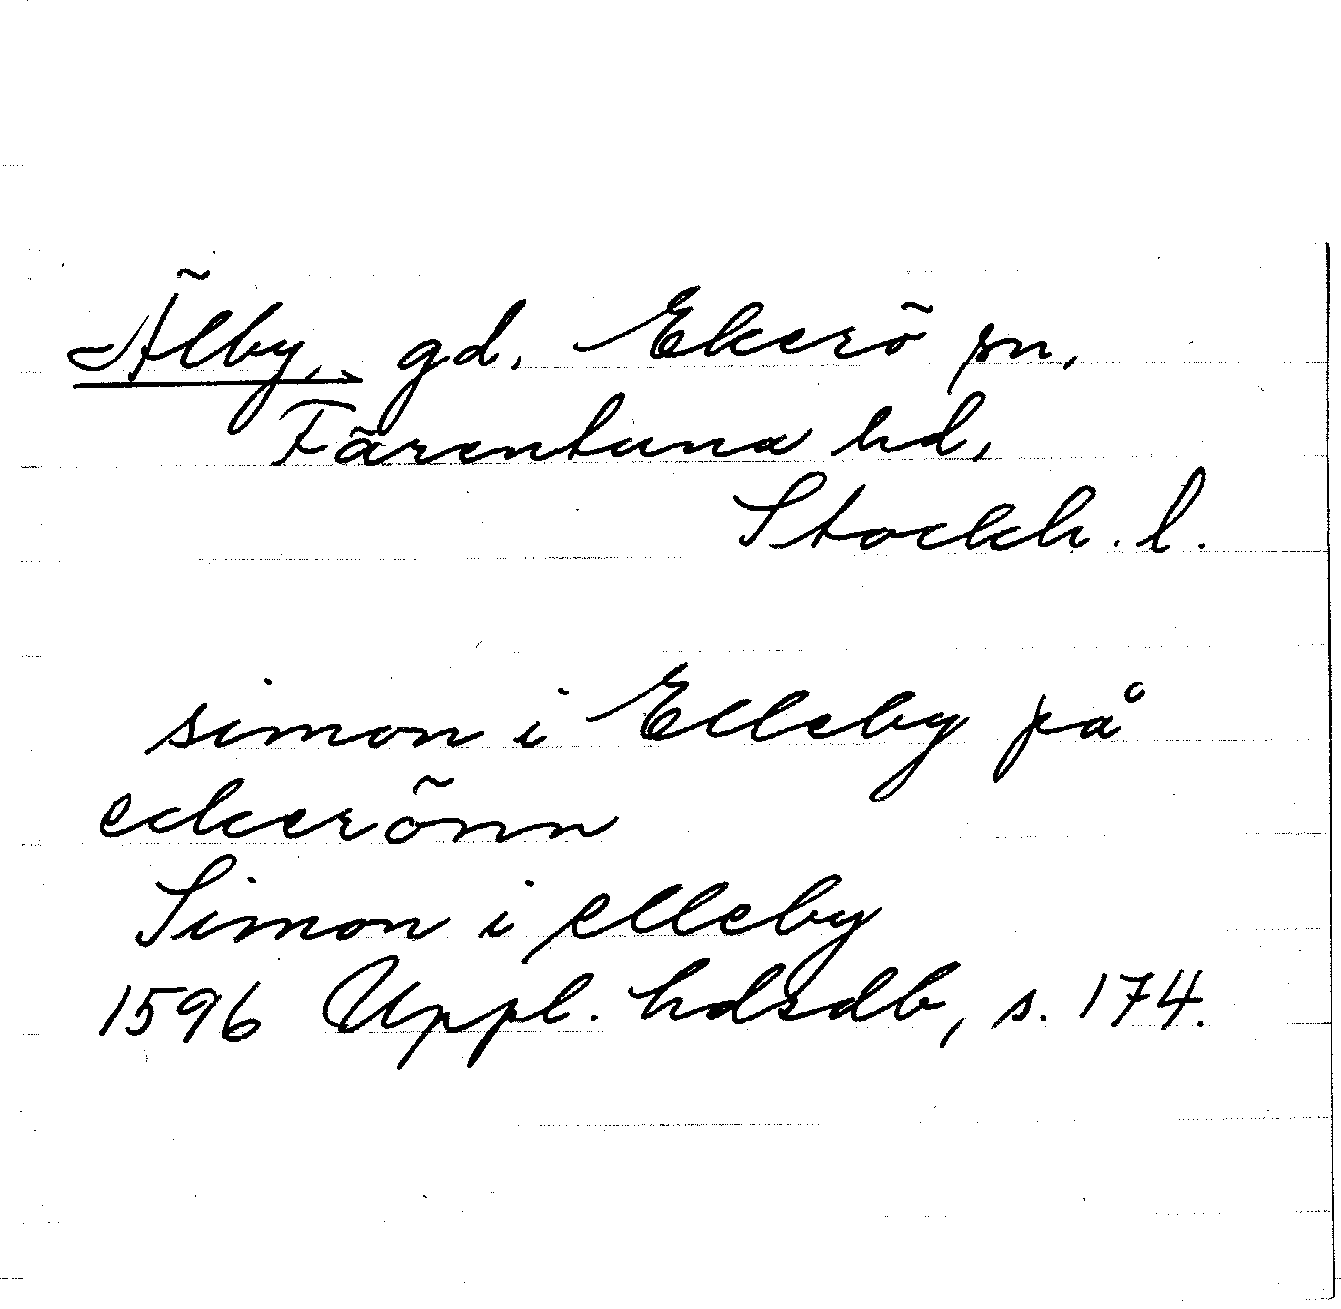 Älby, gd, Ekerö sn,
Färentuna hd,
Stockh. l.
simon i Elleby på
eckerönn
Simon i elleby
1596 Uppl. hdsdb, s. 174.